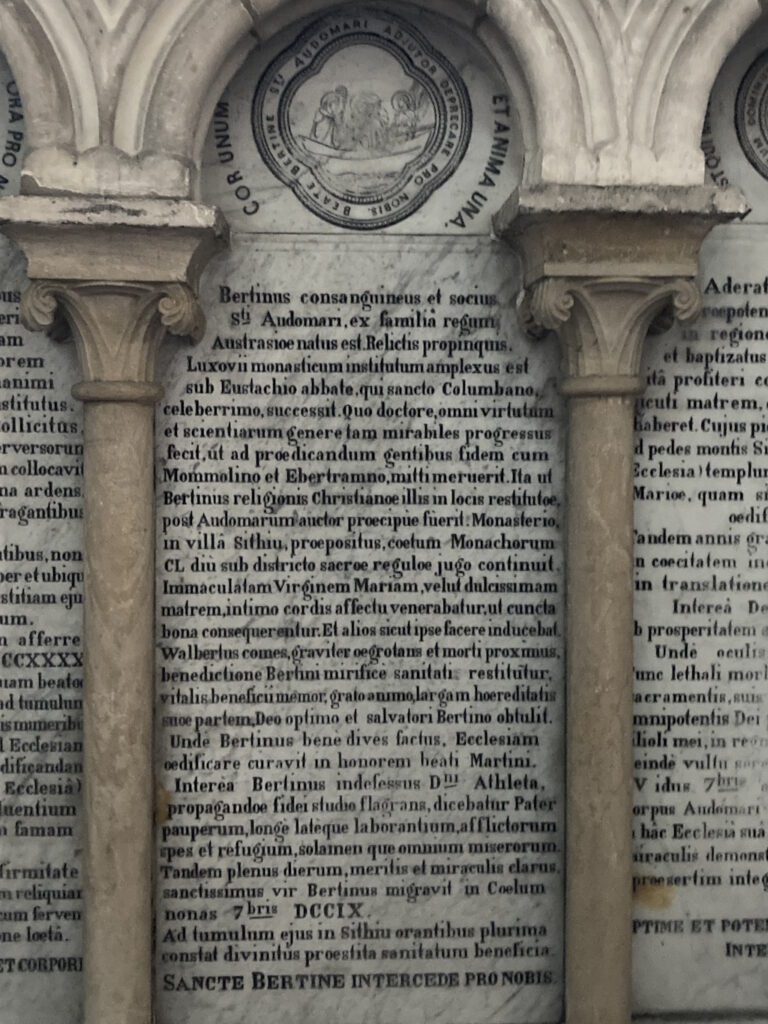 BEATE BERTINE STI AUDOMARI ADJUTOR DEPRECARE PRO NOBIS.
COR UNUM
ET ANIMA UNA.
Bertinus consanguineus et socius
Sti Audomari, ex familiâ regum
Austrasioe natus est. Relictis propinquis.
Luxovii monasticum institutum amplexus est
sub Eustachio abbate, qui sancto Columbano,
celeberrimo, successit. Quo doctore, omni virtutum
et scientiarum genere tam mirabiles progressus
fecit, ut ad proedicandum gentibus fidem cum
Mommolino et Ebertramno, mitti meruerit. Ita ut
Bertinus religionis Christianoe illis in locis restitutoe,
post Audomarum auctor proecipue fuerit: Monasterio,
in villâ Sithiu, proepositus, coetum Monachorum
CL diu sub districto sacroe reguloe jugo continuit.
Immaculatam Virginem Mariam, velut dulcissimam
matrem, intimo cordis affectu venerabatur, ut cuncta
bona consequerentur. Et alios sicut ipse facere inducebat.
Walbertus comes, graviter oegrotans et morti proximus,
benedictione Bertini mirifice sanitati restitutur,
vitalis beneficii memor, grato animo, largam hoereditatis
suoe partem, Deo optimo et salvatori Bertino obtulit.
Undè Bertinus bene dives factus, Ecclesiam
oedificare curavit in honorem beati Martini.
Intereà Bertinus indefessus Dni Athleta,
propagandoe fidei studio flagrans, dicebatur Pater
pauperum, longe lateque laborantium, afflictorum
spes et refugium, solamen que omnium miserorum.
Tandem plenus dierum, meritis et miraculis clarus,
sanctissimus vir Bertinus migravit in Coelum
nonas 7bris DCCIX.
Ad tumulum ejus in Sithiu orantibus plurima
constat divinitus proestita sanitatum beneficia.
SANCTE BERTINE INTERCEDE PRO NOBIS.
ORA PRO
animi
stitutus.
ollicitus,
collocavit
na ardens
ragantibus
tibus, non
per et ubiqu
stitiam eju
um.
afferre
CCXXXX
ad tumulum
Ecclesian
dificandan
Ecclesiâ)
luentium
famam
firmitate
reliquiar
cum ferven
loetâ.
ET CORPORI
Aderat
in regione
et baptizatus
itâ profiteri co
matrem,
haberet. Cujus pi
d pedes montis Si
Ecclesia) templum
Marioe, quam si
oedif
andem annis gra
n coecitatem in
in translatione
Intereà De
b prosperitatem
Undè oculis
unc lethali mor
acramentis, suis
mnipotentis Dei
filioli mei, in
eindè vultu
V idus 7bris
orpus Audomari
hâc Ecclesiâ suâ
iraculis demonst
proesertim integ
PTIME ET POTEN
INTE